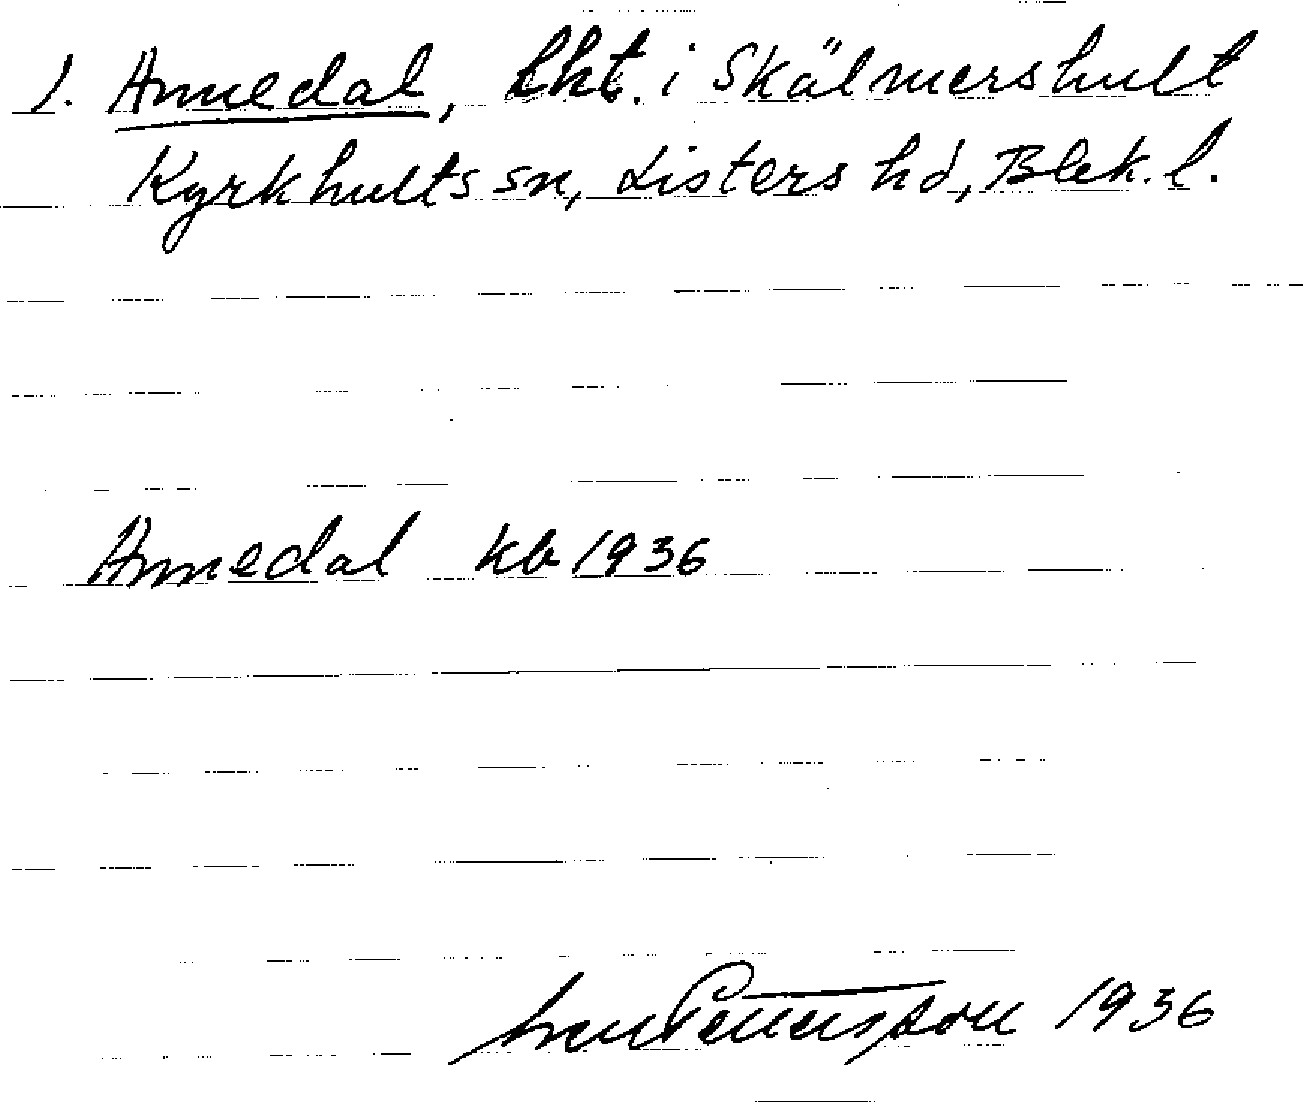 1. Annedal, lht. i Skälmershult
Kyrkhults sn, Listers hd, Blek. l.
Annedal kb 1936
Sven Pettersson 1936